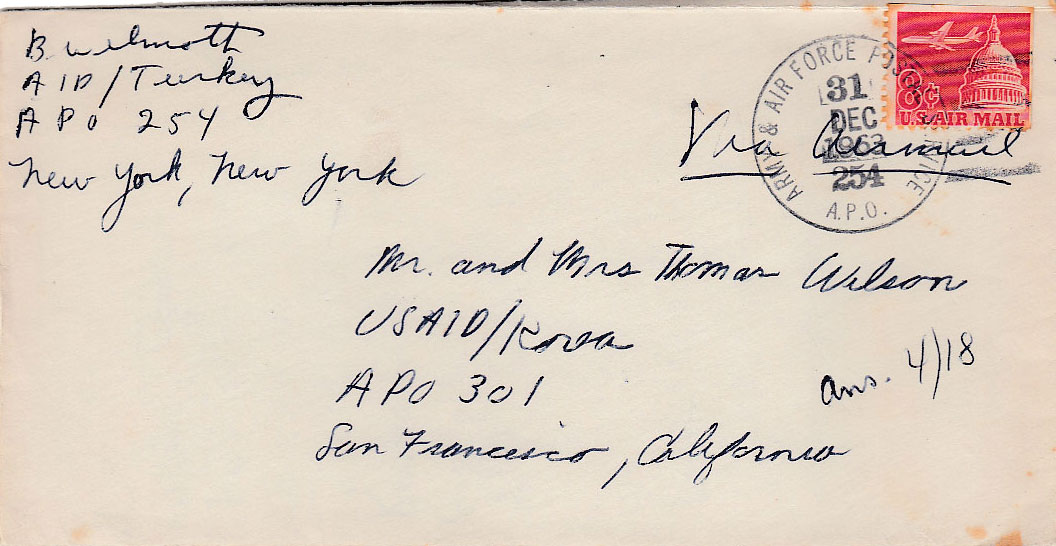 B Wilmoth
AID/Turkey
APO 254
New York, New York
8¢
U.S. AIR MAIL
ARMY & AIR FORCE POSTAL SERVICE
31
DEC
1963
254
A.P.O.
Via Airmail
Mr. and Mrs Thomas Wilson
USAID/Korea
APO 301
San Francisco, California
ans. 4/18